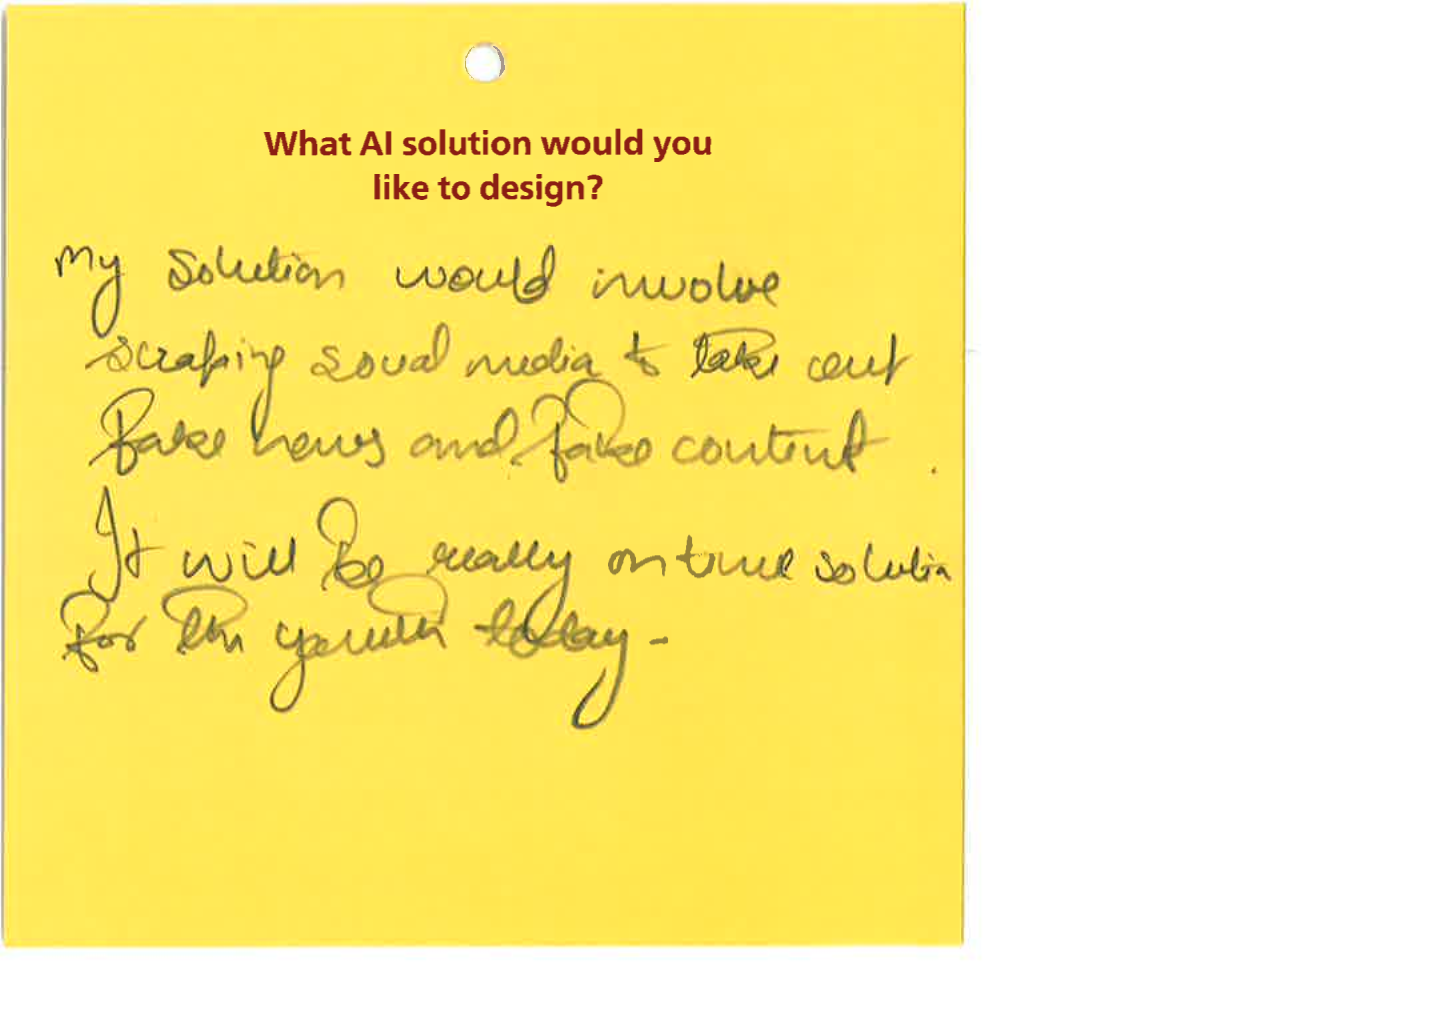 What AI solution would you
like to design?
My solution would involve
scraping social media to take out
fake news and fake content.
It will be really on time solution
for the youth today -